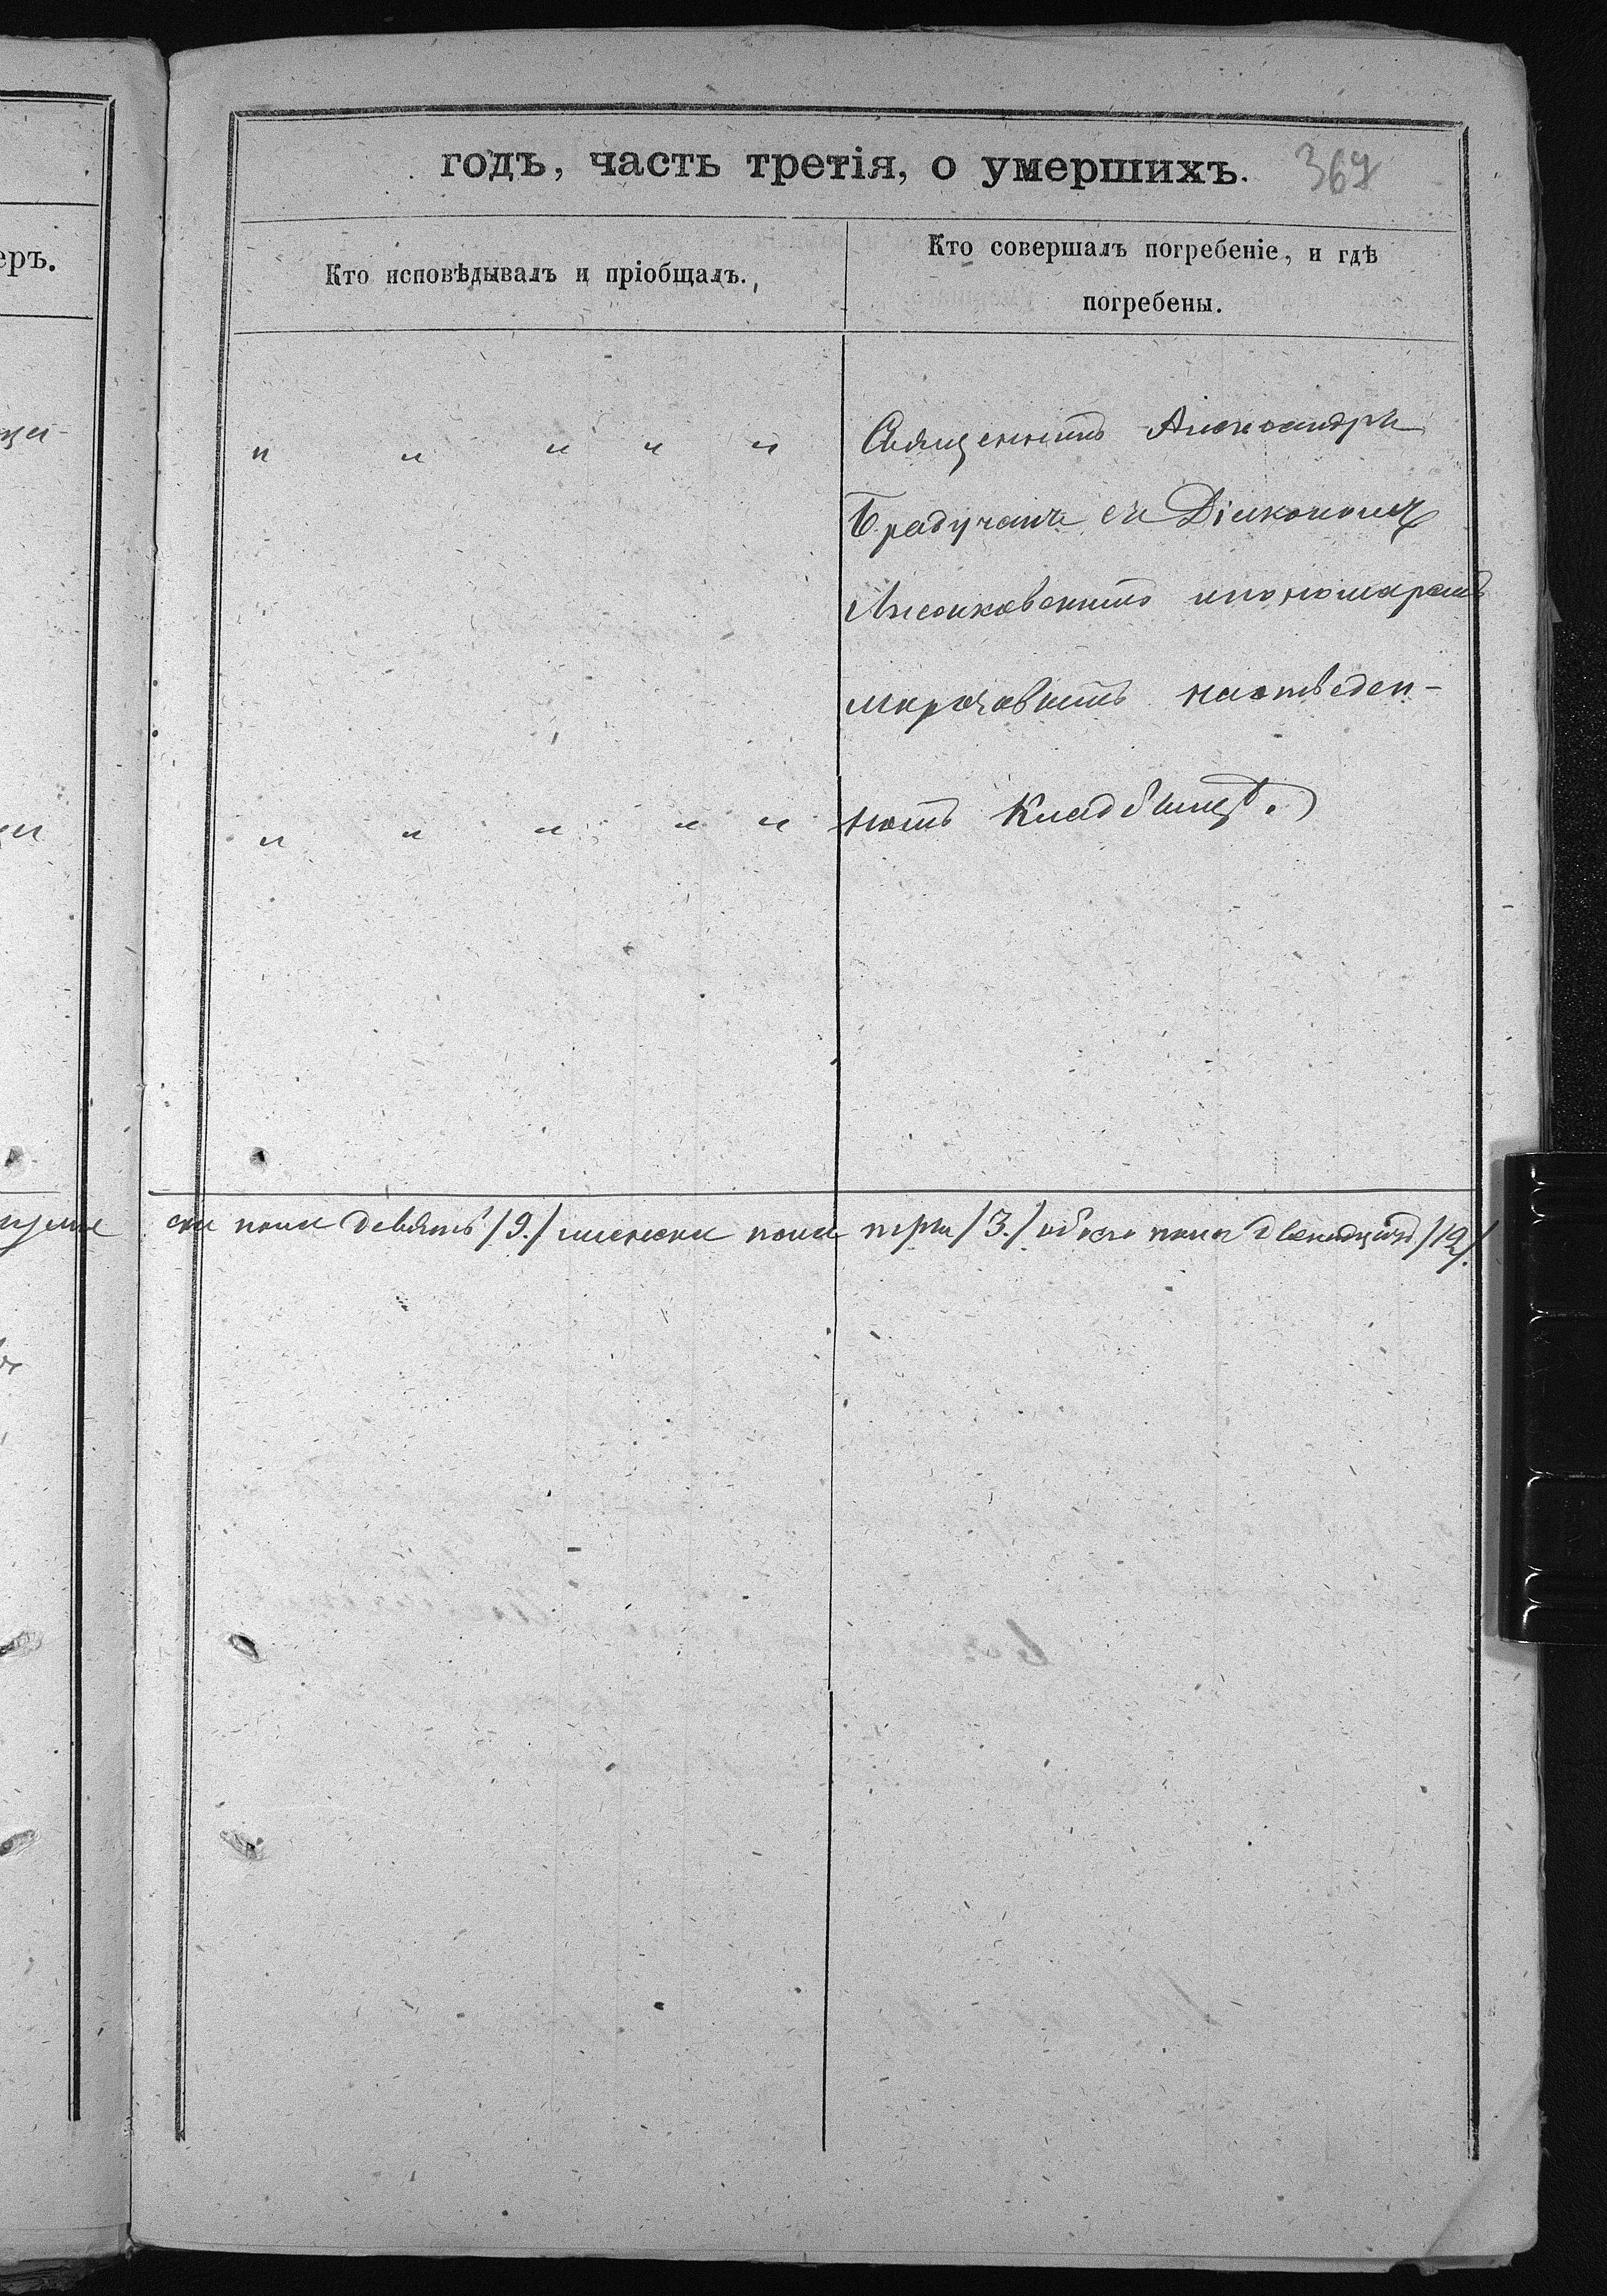 еръ.
годъ, часть третія, о умершихъ.
Кто исповѣдывалъ и пріобщалъ.
Кто совершалъ погребеніе, и гдѣ
погребены.
" " " " "
Священникъ Александръ
Брадучанъ съ Діакономъ
пономаремъ
наотведен-
" " " " "
номъ Кладбищѣ.
ска пола девять /9./ женска пола три /3./ обоего пола двенадцать /12/.